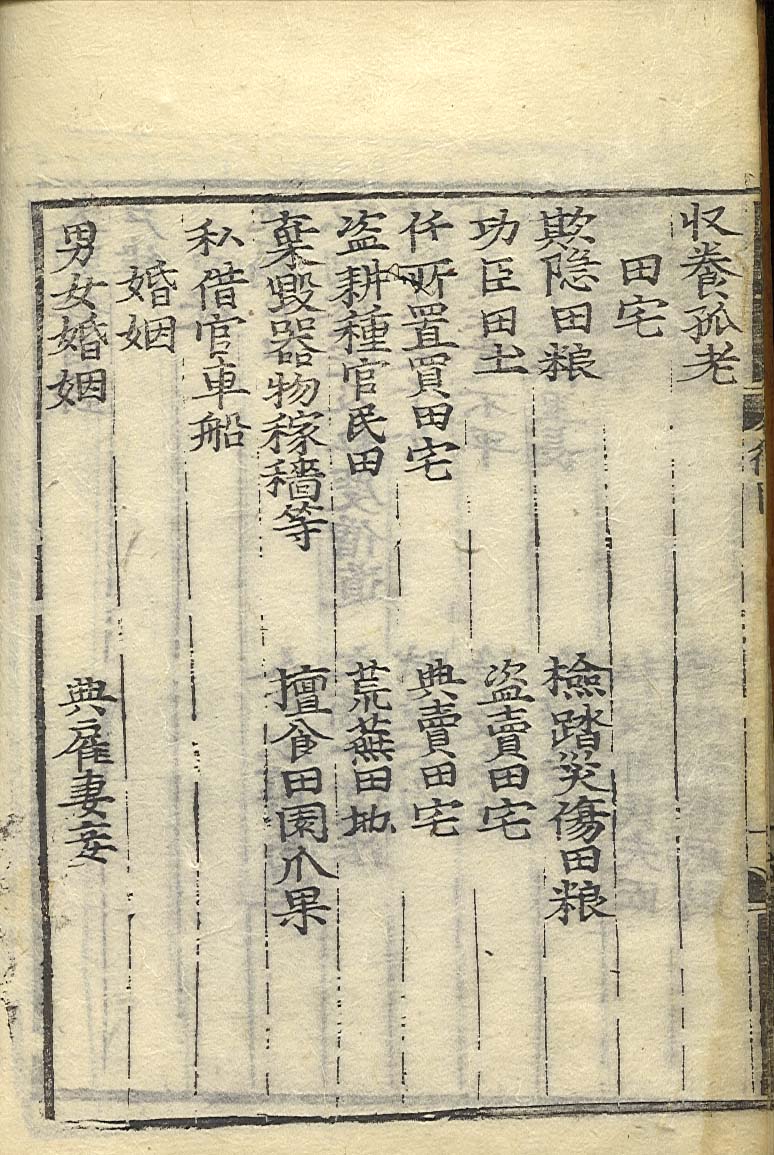 収養孤老
田宅
欺隠田粮 檢踏災傷田粮
功臣田土 盗賣田宅
任所置買田宅 典賣田宅
盗耕種官民田 荒蕪田地
棄毀器物稼穡等 擅食田園瓜果
私借官車船
婚姻
男女婚姻 典雇妻妾